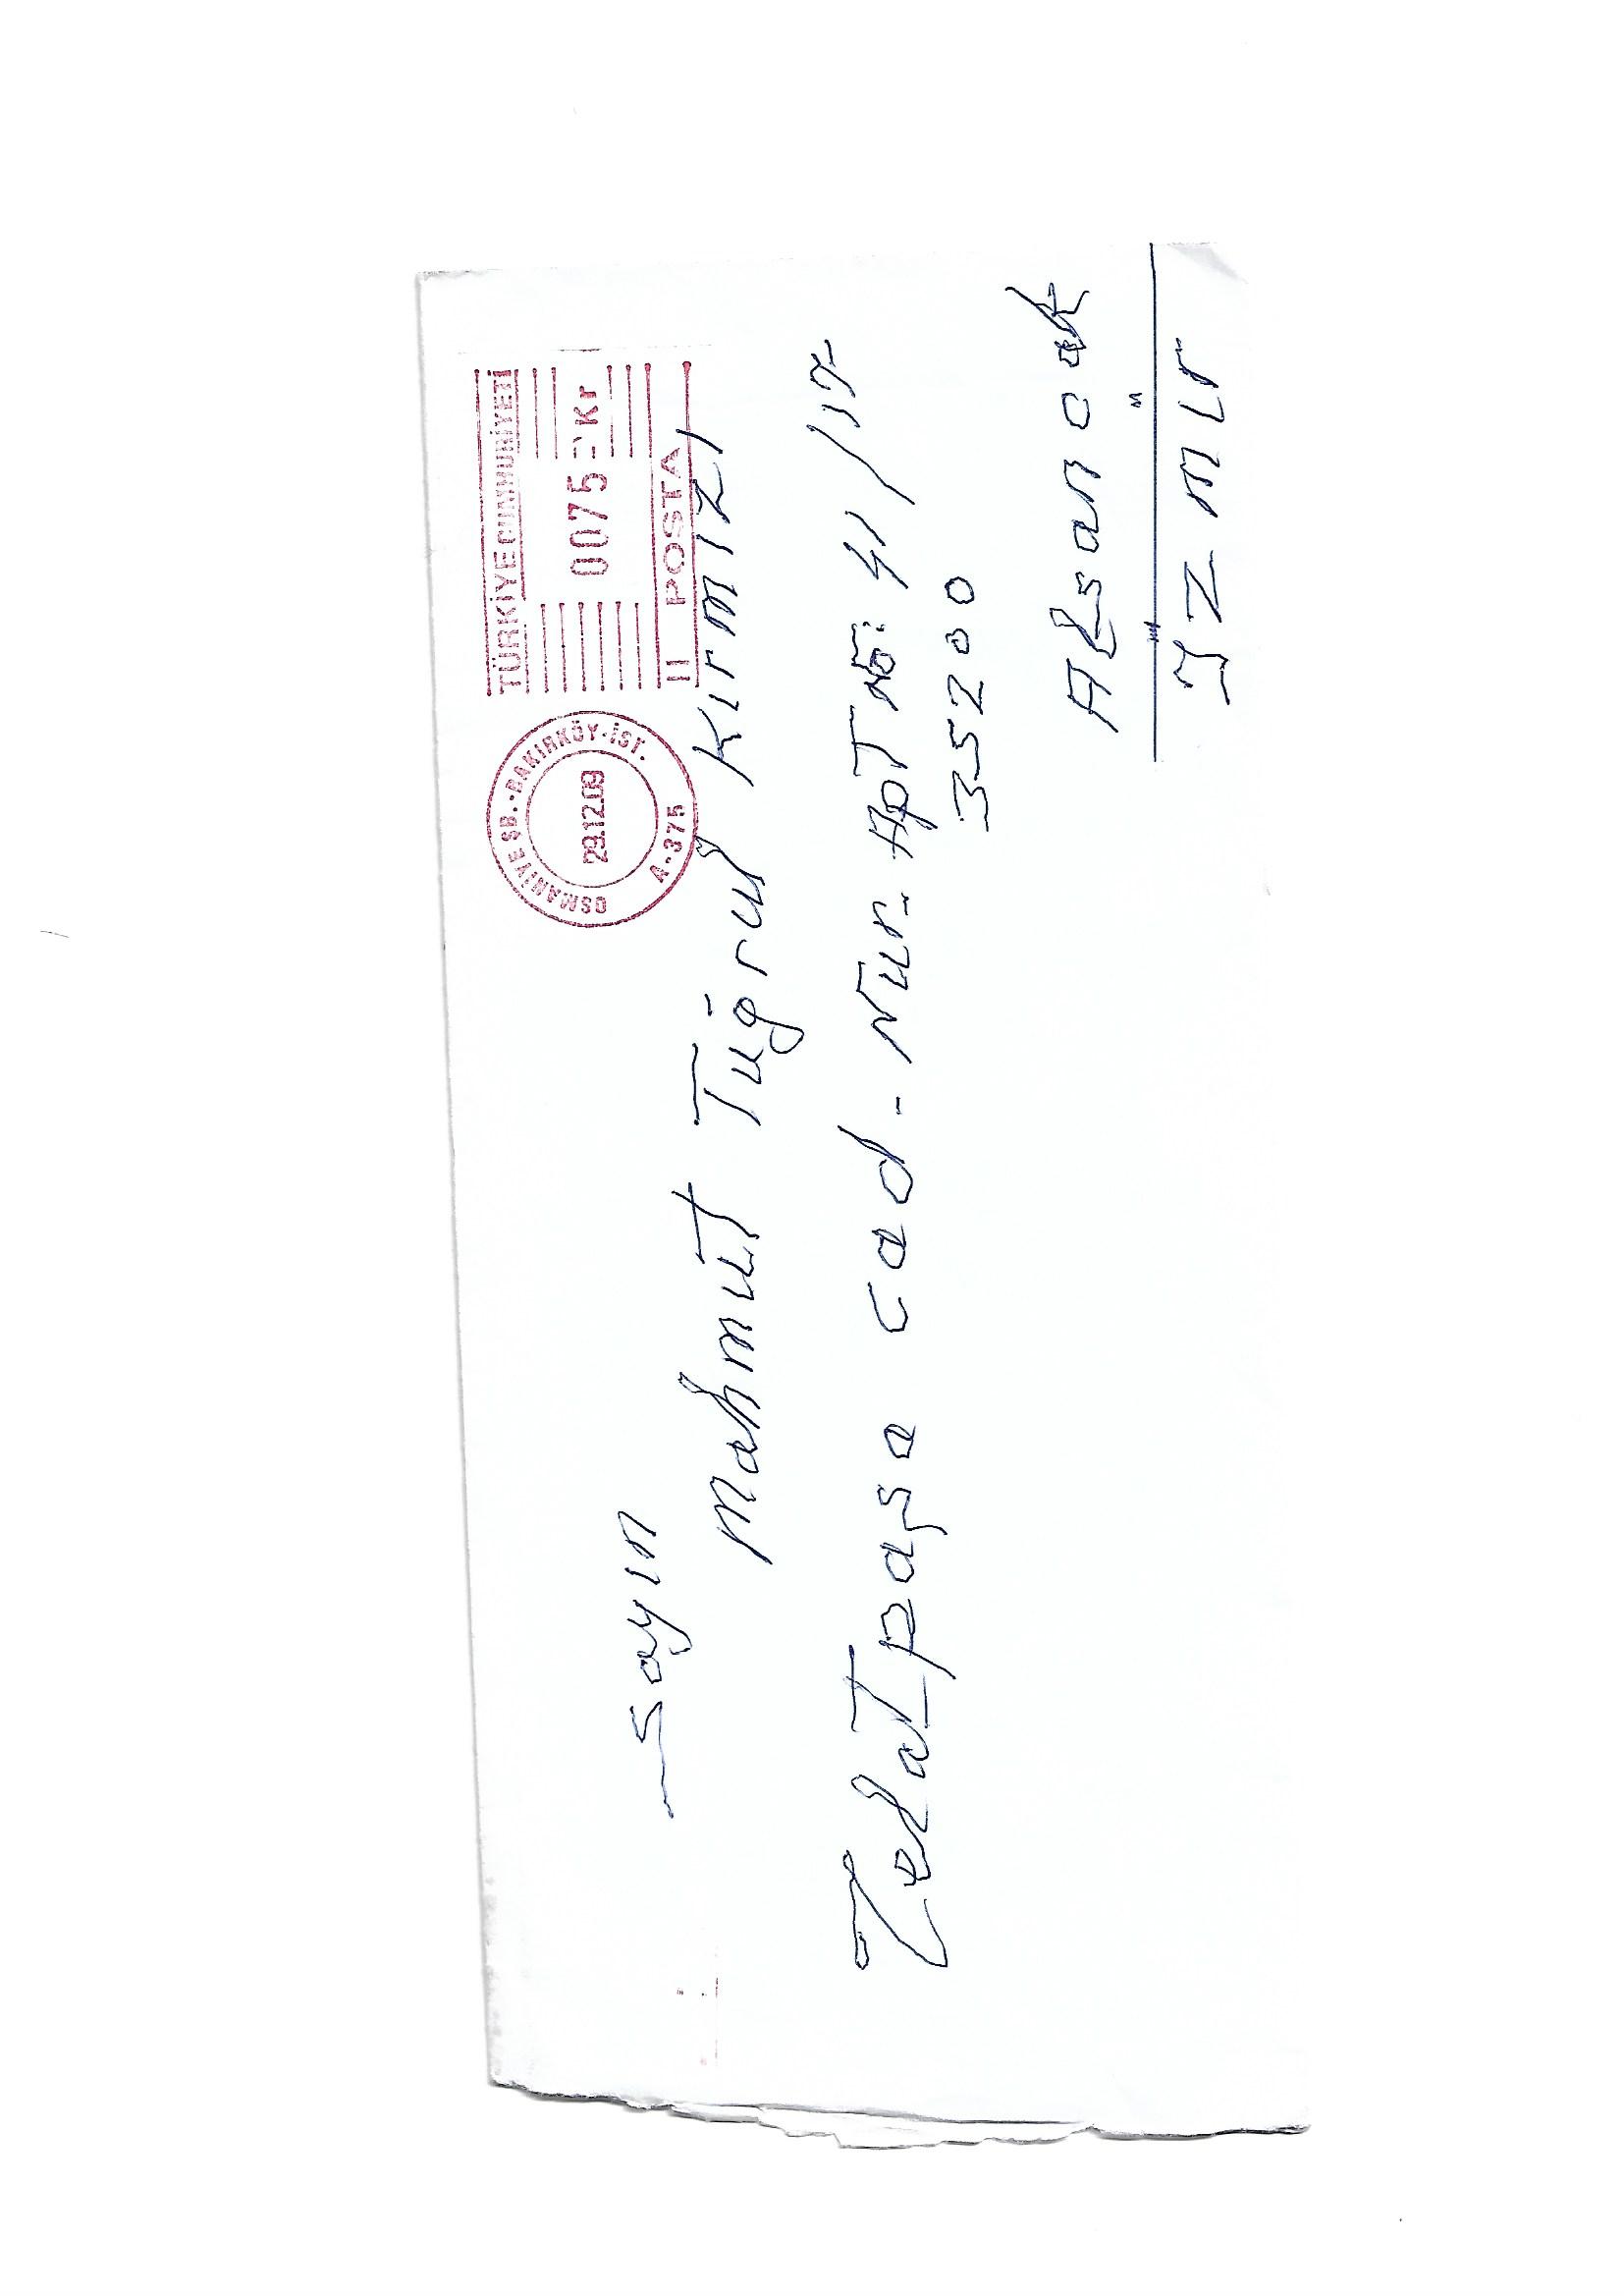 TÜRKİYE CUMHURİYETİ
0075 Kr
II POSTA
OSMANİYE ŞB.-BAKIRKÖY-İST.
29.12.09
A-375
Sayın
Mahmut Tuğrul Kırmızı
TelaTpaşa cad- Nur- ApT No: 41/
35200
Alsancak
İzmir